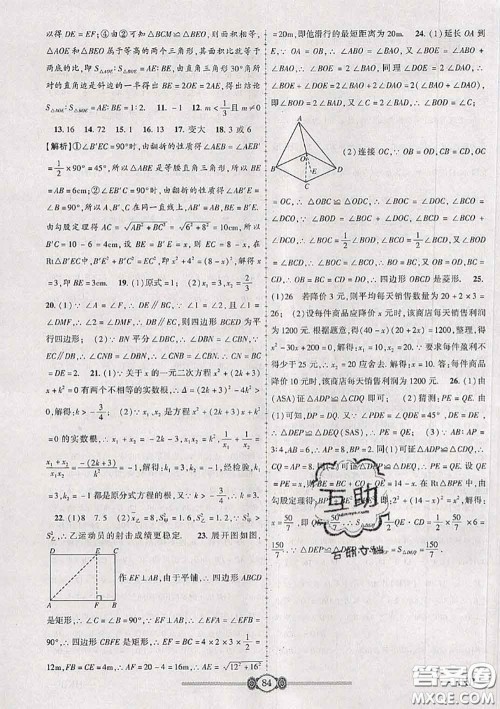 以得 DE = EF；④由②可证△BCM≌△BEO，所以
△AOE 和△BEO 属于等高的两个三角形，其面积比就等于
两底的比，即 S△AOE : S△BOE = AE : BE，由直角三角形30°角所
对的直角边是斜边的一半得出 BE = OE = 2AE，所以
S△AOE : S△BOE = AE : BE = 1 : 2. 11. -1 12. m < 1/3 且
13. 16 14. 72 15. 1 16. 13 17. 变大 18. 3 或 6
【解析】①∠B′EC = 90°时，由翻折的性质得∠AEB = ∠AEB′
= 1/2 × 90° = 45°，所以△ABE 是等腰直角三角形，所以 BE =
AB = 6cm；②∠EB′C = 90°时，由翻折的性质得∠AB′E =
∠B = 90°，所以 A、B′、C 在同一直线上，AB′ = AB，BE = B′E，
由勾股定理得 AC = √(AB² + BC²) = √(6² + 8²) = 10cm，所以
B′C = 10 - 6 = 4cm，设 BE = B′E = x，则 EC = 8 - x，在
Rt△B′EC 中，B′E² + B′C² = EC²，即 x² + 4² = (8 - x)²，解得 x
= 3，即 BE = 3cm. 19. (1)原式 = 1；(2)
20. (1)∵∠A = ∠F，∴DF∥AC，又∵∠1 = ∠2，∠1 =
∠DMF，∴∠2 = ∠DMF，∴DB∥EC，则四边形 BCED 为平行
四边形；(2)∵BN 平分∠DBC，∴∠DBN = ∠CBN，∵
EC∥DB，∴∠CNB = ∠DBN，∴∠CNB = ∠CBN，∴CN = BC
= DE = 2. 21. (1)∵关于 x 的一元二次方程 x² + (2k + 3)x
+ k² = 0 有两个不相等的实数根，∴Δ = (2k + 3)² - 4k² > 0，
解得：k > -3/4；(2)∵x₁、x₂ 是方程 x² + (2k + 3)x + k²
= 0 的实数根，∴x₁ + x₂ = -2k - 3，x₁x₂ = k²，∴1/x₁ + 1/x₂ =
(x₁ + x₂)/(x₁x₂) = -(2k + 3)/k² = -1，解得：k₁ = 3，k₂ = -1，经检验，k₁
= 3，k₂ = -1 都是原分式方程的根，又∵k > -3/4，∴k = 3.
22. (1)8 7.5
S²乙，∴乙运动员的射击成绩更稳定. 23. 展开图如图，
D E C
A F B
作 EF⊥AB，由于平铺，∴四边形 ABCD
是矩形，∴∠C = ∠B = 90°，∵EF⊥AB，∴∠EFA = ∠EFB =
90°，∴四边形 CBFE 是矩形，∴EF = BC = 4 × 2 × 3 × 1/2 =
12m，FB = CE = 4m，∴AF = 20 - 4 = 16m，∴AE = √(12² + 16²)
= 20m，即他滑行的最短距离为 20m. 24. (1)延长 AO 到
E，∵OA = OB，∴∠ABO = ∠BAO，又∠BOE = ∠ABO +
∠BAO，∴∠BOE = 2∠BAO，同理∠DOE = 2∠DAO，∴
∠BOE + ∠DOE = 2∠BAO + 2∠DAO = 2(∠BAO +
∠DAO)，即∠BOD = 2∠BAD，又∠C = 2∠BAD，∴∠BOD
= ∠C；
A
O
B D
E
C
(2)连接 OC，∵OB = OD，CB = CD，OC
= OC，∴△OBC≌△ODC，∴∠BOC = ∠DOC，∠BCO =
∠DCO，∵∠BOD = ∠BOC + ∠DOC，∠BCD = ∠BCO +
∠DCO，∴∠BOC = 1/2∠BOD，∠BCO = 1/2∠BCD，又∠BOD
= ∠BCD，∴∠BOC = ∠BCO，∴BO = BC，又 OB = OD，BC =
CD，∴OB = BC = CD = DO，∴四边形 OBCD 是菱形. 25.
(1)26 若降价 3 元，则平均每天销售数量为 20 + 2 × 3 =
26；(2)设每件商品应降价 x 元时，该商店每天销售利润
为 1200 元. 根据题意，得(40 - x)(20 + 2x) = 1200，整理，
得 x² - 30x + 200 = 0，解得：x₁ = 10，x₂ = 20. ∵要求每件盈利不
少于 25 元，∴x₂ = 20 应舍去. 解得：x = 10. 答：每件商品应
降价 10 元时，该商店每天销售利润为 1200 元. 26. (1)由
(ASA)可证△ADP≌△CDQ 即可；(2)猜测：PE = QE，由
(1)可知，DP = DQ，又∵∠PDE = ∠QDE = 45°，DE =
DE，∴△DEP≌△DEQ(SAS)，∴PE = QE；(3)∵AB : AP
= 3 : 4，AB = 6，∴AP = 8，BP = 2. 同(1)可证△ADP≌△CDQ，∴
CQ = AP = 8. 同(2)可证△DEP≌△DEQ，∴PE = QE. 设
BP + BC - CQ
勾股定理得 BP² + BE² = PE²，即：2² + (14 - x)² = x²，解得：x
= 50/7，即 QE = 50/7，∴S△DEQ = 1/2 QE·CD = 1/2 × 50/7 × 6 =
150/7，∵△DEP≌△DEQ，∴S△DEP = S△DEQ = 150/7.
互助
84
答案圈
MXQE.COM